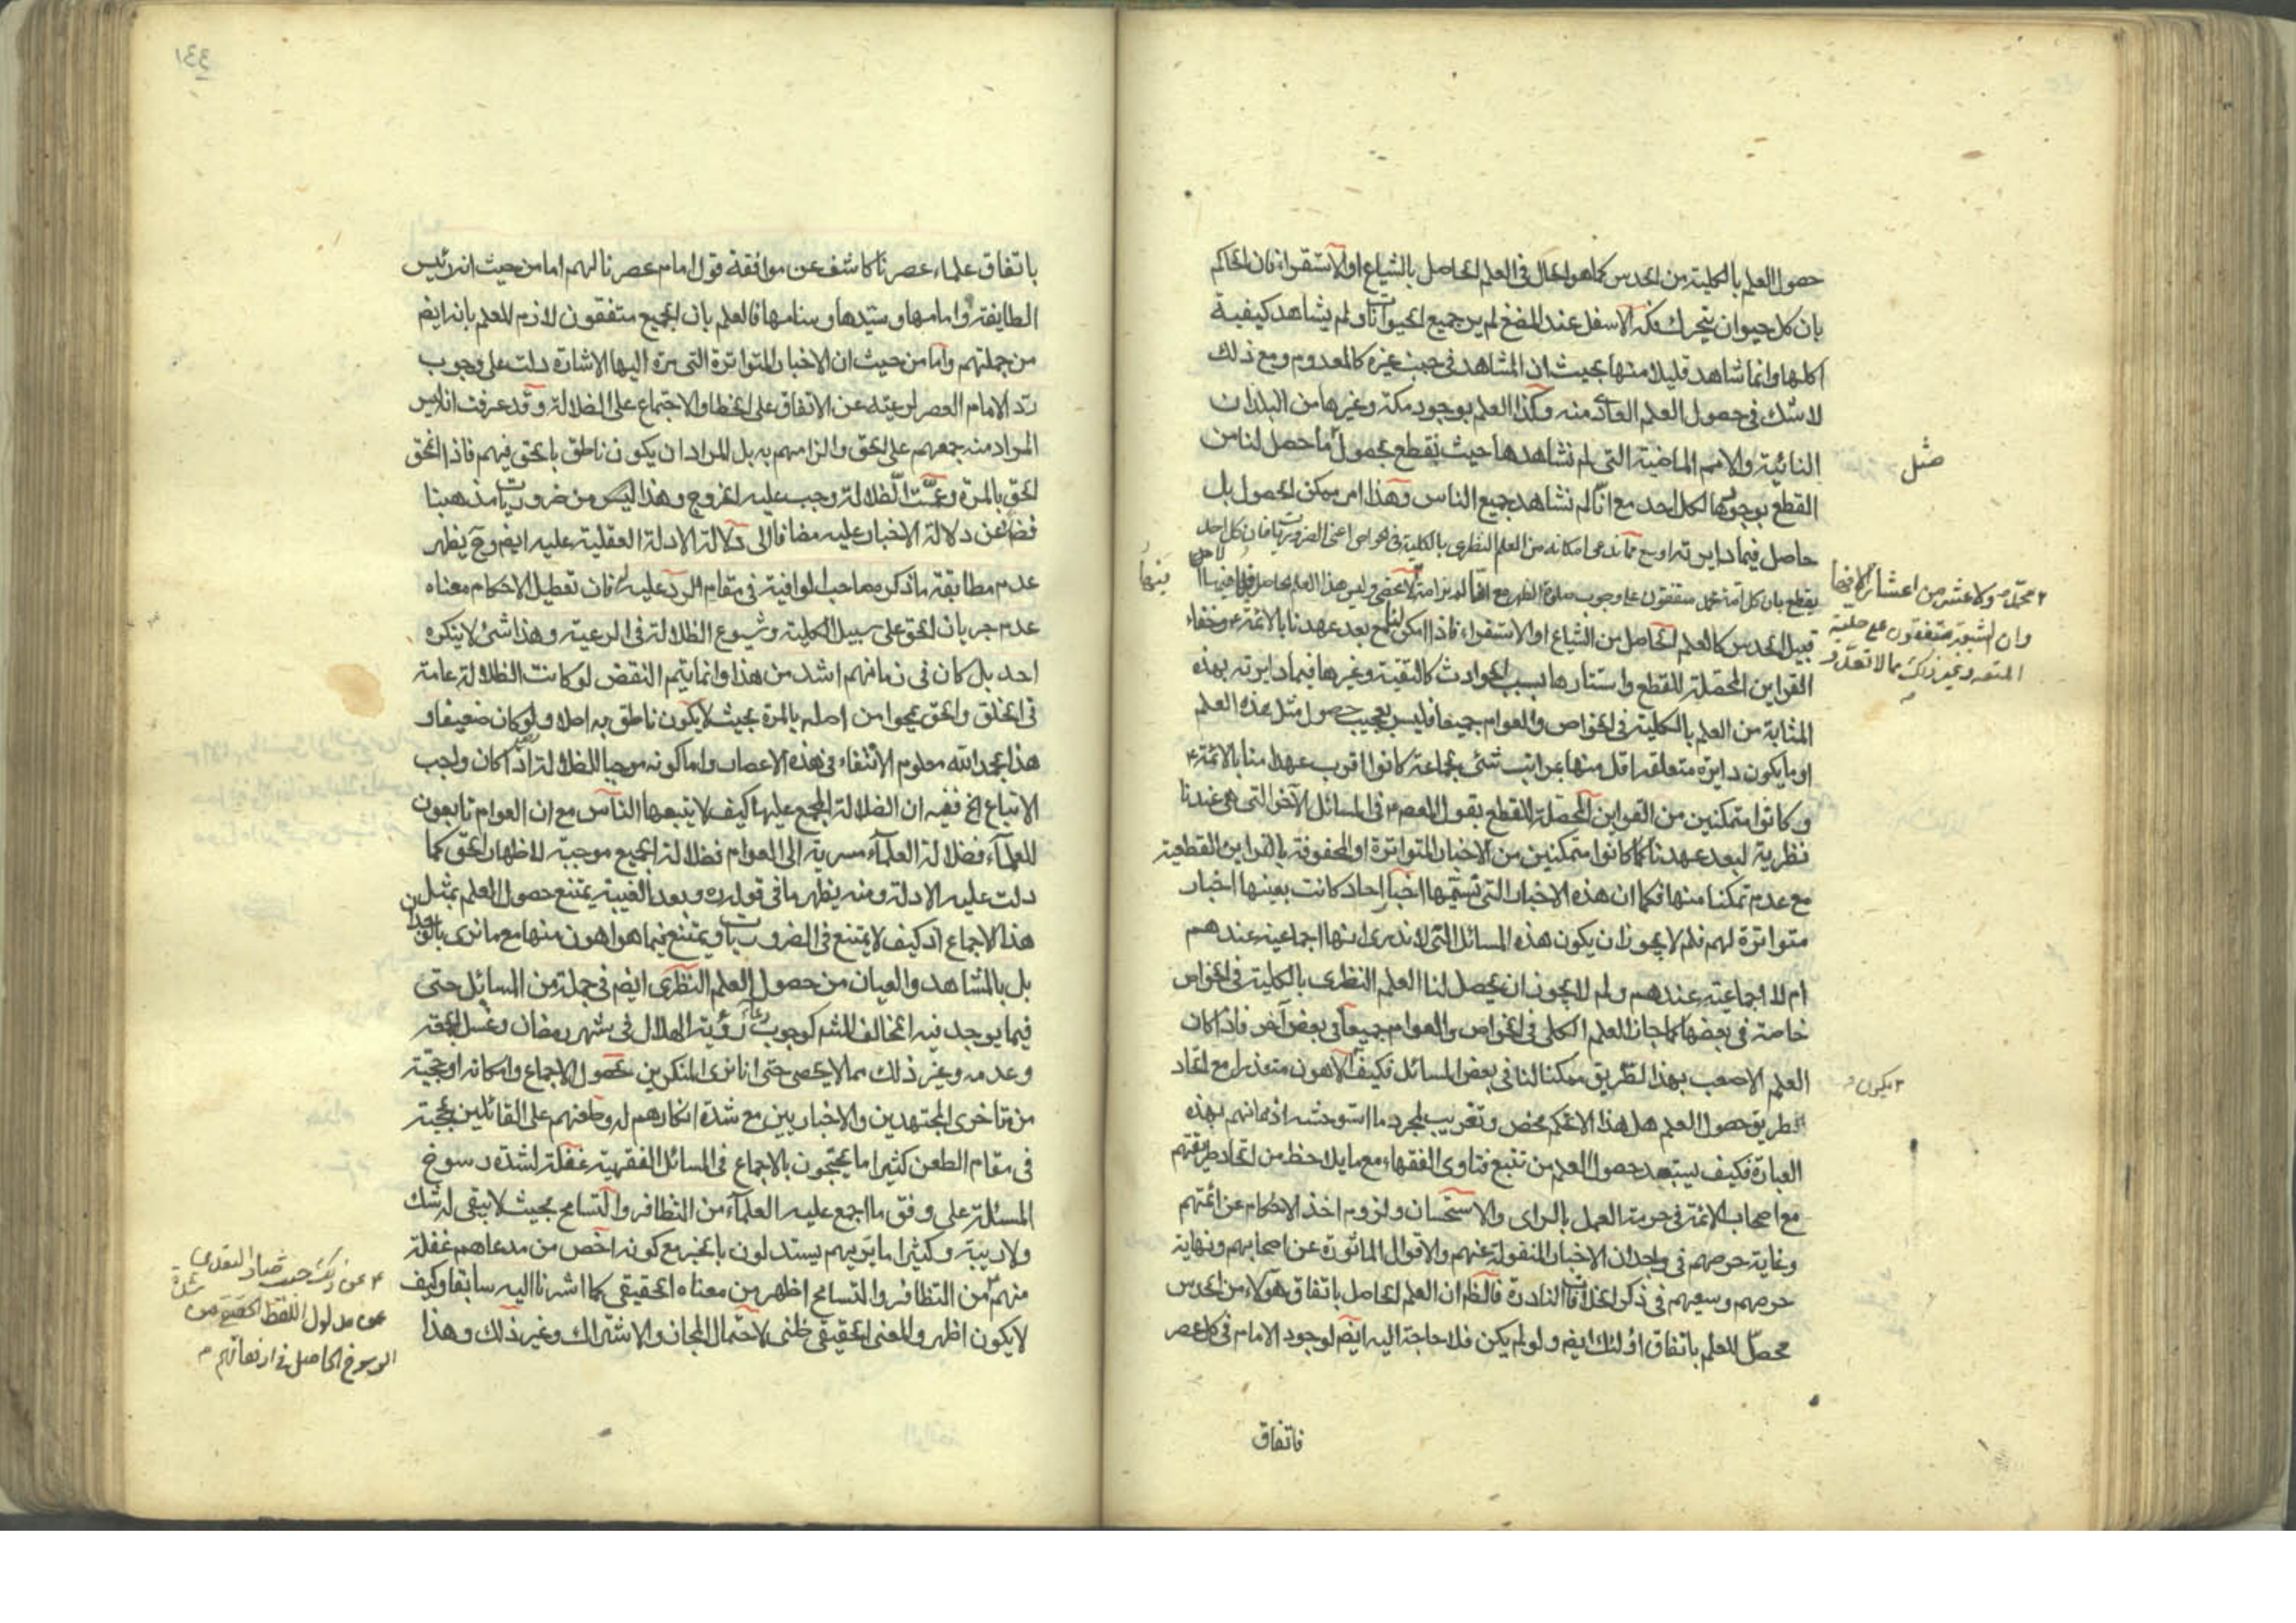 حصول العلم بالكلية من الحدس كما هو الحال فى العلم الحاصل بالشياع او الاستقراء فان الحاكم
بان كل حيوان يتحرك فكه الاسفل عند المضغ لم ير جميع الحيوانات ولم يشاهد كيفية
اكلها وانما شاهد قليلا منها بحيث ان المشاهد فى جنب غيره كالمعدوم ومع ذلك
لا شك فى حصول العلم العادى منه وكذا العلم بوجود مكة وغيرها من البلدان
النائية والامم الماضية التى لم نشاهدها حيث نقطع بحصول ما حصل لنا من
مثل
القطع بوجودها لكل احد مع انا لم نشاهد جميع الناس وهذا امر ممكن الحصول بل
حاصل فيما دايرته اوسع مما ندعى امكانه من العلم النظرى بالكلية فى الخواص اعنى الضروريات فان كل احد
يقطع بان كل امة محمد متفقون على وجوب صلوة الظهر مع انا لم نر امة لا تحصى وليس هذا العلم الحاصل
٢ محمد ص ولا عشر من اعشار الافيها
وان الشيعة متفقون على حلية
المتعه وغير ذلك مما لا تعد و
قبيل الحدس كالعلم الحاصل من الشياع او الاستقراء فاذا امكن لنا مع بعد عهدنا بالائمة ع وخفاء
القراين المحصلة للقطع واستتارها بسبب الحوادث كالتقية وغيرها فيما دايرته بهذه
المثابة من العلم بالكلية فى الخواص والعوام جميعا فليس بعجيب حصول مثل هذه العلم
او ما يكون دايرة متعلقه اقل منها بمراتب شتى لجماعة كانوا اقرب عهدا منا بالائمة ع
وكانوا متمكنين من القراين المحصلة للقطع بقول المعصوم فى المسائل الآخر التى هى عندنا
نظرية لبعد عهدنا كما كانوا متمكنين من الاخبار المتواترة او المحفوفة بالقراين القطعية
مع عدم تمكننا منها فكما ان هذه الاخبار التى نسميها اخبار احاد كانت بعينها اخبار
متواترة لهم فلم لا يجوز ان يكون هذه المسائل التى لا ندرى انها اجماعية عندهم
ام لا اجماعية عندهم ولم لا يجوز ان يحصل لنا العلم النظرى بالكلية فى الخواص
خاصة فى بعضها كما جاز العلم الكلى فى الخواص والعوام جميعا فى بعض آخر فاذا كان
العلم الاصعب بهذا الطريق ممكنا لنا فى بعض المسائل فكيف الاهون متعذرا مع اتحاد
٢ يكون
طريق حصول العلم هل هذا الا تحكم محض وتغريب لمجرد ما استوحشه اذهانهم بهذه
العبارة فكيف يستبعد حصول العلم من تتبع فتاوى الفقهاء مع ما يلاحظ من اتحاد طريقتهم
مع اصحاب الائمة فى حرمة العمل بالراى والاستحسان ولزوم اخذ الاحكام عن ائمتهم
وغاية حرصهم فى وجدان الاخبار المنقولة عنهم والاقوال الماثورة عن اصحابهم ونهاية
حرصهم وسعيهم فى ذكر الخلافات النادرة فالظ ان العلم الحاصل باتفاق هؤلاء من الحدس
محصل للعلم باتفاق اولئك ايضم ولو لم يكن فلا حاجة اليه ايضم لوجود الامام فى كل عصر
فاتفاق
٤٣١
باتفاق علماء عصرنا كاشف عن موافقة قول امام عصرنا لهم اما من حيث انه رئيس
الطايفة وامامها وسيدها وسنامها فالعلم بان الجميع متفقون لازم للعلم بانه ايضم
من جملتهم واما من حيث ان الاخبار المتواترة التى مرة اليها الاشارة دلت على وجوب
رد الامام العصر لرعيته عن الاتفاق على الخطا والاجتماع على الضلالة وقد عرفت انه ليس
المراد منه جمعهم على الحق والزامهم به بل المراد ان يكون ناطق بالحق فيهم فاذا انمحق
الحق بالمرة وعمت الضلالة وجب عليه الخروج وهذا ليس من ضروريات مذهبنا
فضلا عن دلالة الاخبار عليه مضافا الى دلالة الادلة العقلية عليه ايضم وح يظهر
عدم مطابقة ما ذكره صاحب الوافية فى مقام الرد عليه فان تعطيل الاحكام معناه
عدم جريان الحق على سبيل الكلية وشيوع الظلالة فى الرعية وهذا شئ لا ينكره
احد بل كان فى زمانهم اشد من هذا وانما يتم النقض لو كانت الظلالة عامة
فى الخلق والحق ممحوا من اصله بالمرة بحيث لا يكون ناطق به اصلا ولو كان ضعيفا و
هذا بحمد الله معلوم الانتفاء فى هذه الاعصار واما كونه موجبا للظلالة اذا كان واجب
الاتباع الخ ففيه ان الضلالة المجمع عليها كيف لا يتبعها الناس مع ان العوام تابعون
للعلماء فضلالة العلماء مسرية الى العوام فضلالة الجميع موجبة لاظهار الحق كما
دلت عليه الادلة ومنه يظهر ما فى قوله ره وبعد الغيبة يمتنع حصول العلم بمثل
هذا الاجماع اذ كيف لا يمتنع فى الضروريات ويمتنع فيما هو اهون منها مع ما نرى بالوجدان
بل بالمشاهد والعيان من حصول العلم النظرى ايضم فى جملة من المسائل حتى
فيما يوجد فيه المخالف للشم كوجوب دعاء رؤية الهلال فى شهر رمضان وغسل الجمعة
وعدمه وغير ذلك مما لا يحصى حتى انا نرى المنكرين لحصول الاجماع وامكانه او حجيته
من متاخرى المجتهدين والاخباريين مع شدة انكارهم له وطعنهم على القائلين بحجيته
فى مقام الطعن كثيرا ما يحتجون بالاجماع فى المسائل الفقهية غفلة لشدة رسوخ
المسئلة على وفق ما اجمع عليه العلماء من التظافر والتسامح بحيث لا يبقى له شك
ولا ريبة وكثيرا ما تريهم يستدلون بالخبر مع كونه اخص من مدعاهم غفلة
منهم من التظافر والتسامح اظهر من معناه الحقيقى كما اشرنا اليه سابقا وكيف
لا يكون اظهر والمعنى الحقيقى ظنى لاحتمال المجاز والاشتراك وغير ذلك وهذا
٤ عن ذلك حيث صار التعدى
عن مدلول اللفظ الحقيقى من شدة
الرسوخ الحاصل فى اذهانهم م